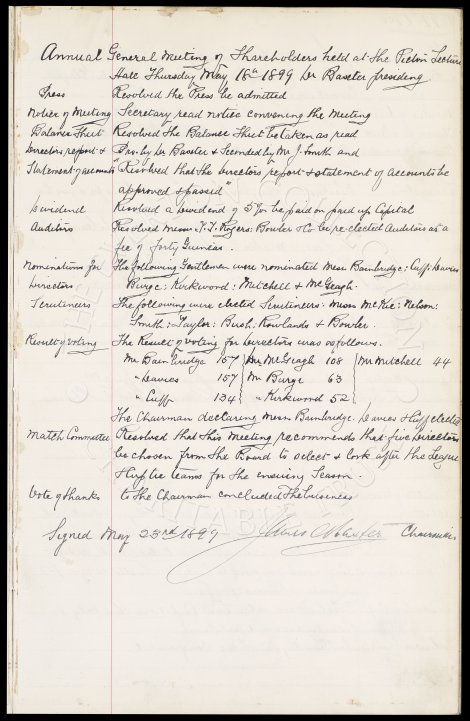 Annual General Meeting of Shareholders held at the Picton Lecture
Hall Thursday May 18th 1899 Dr Baxter presiding.
Press Resolved the Press be admitted
Notice of Meeting Secretary read notice convening the Meeting
Balance Sheet Resolved the Balance Sheet be taken as read
Directors report & Pro: by Dr Baxter & Seconded by Mr J. Smith and
Statement of accounts "Resolved that the Directors report & statement of accounts be
approved & passed"
Dividend Resolved a Dividend of 5% be paid on paid up Capital
Auditors Resolved Messrs Rogers: Bowler & Co be re-elected Auditors at a
fee of forty Guineas.
Nominations for The following Gentlemen were nominated Messr Bainbridge: Cuff: Davies
Directors Burge: Kirkwood: Mitchell & McGeagh.
Scrutineers The following were elected Scrutineers. Messrs McKie: Nelson:
Smith: Taylor: Bush, Rowlands & Bowler.
Result of Voting The Result of voting for Directors was as follows.
Mr Bainbridge 157 Mr McGeagh 108 Mr Mitchell 44
" Davies 157 Mr Burge 63
" Cuff 134 " Kirkwood 52
The Chairman declaring Messrs Bainbridge. Davies & Cuff elected
Match Committee Resolved that this Meeting recommends that five Directors
be chosen from the Board to select & look after the League
& Cup tie teams for the ensuing Season.
Vote of thanks to the Chairman concluded the business
Signed May 23rd 1899 James C Baxter Chairman